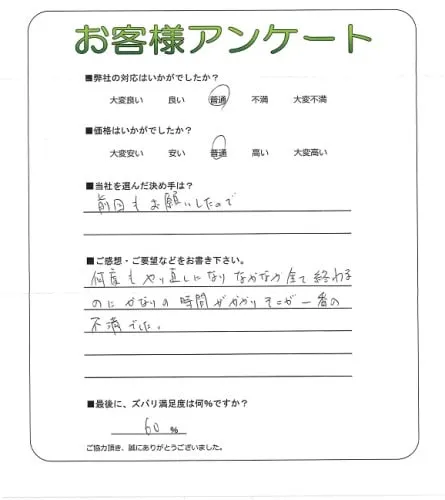 お客様アンケート
■弊社の対応はいかがでしたか?
大変良い 良い 普通 不満 大変不満
■価格はいかがでしたか?
大変安い 安い 普通 高い 大変高い
■当社を選んだ決め手は?
前回もお願いしたので
■ご感想・ご要望などをお書き下さい。
何度もやり直しになりなかなか全て終わる
のにかなりの時間がかかりそこが一番の
不満でした。
■最後に、ズバリ満足度は何%ですか?
60 %
ご協力頂き、誠にありがとうございました。